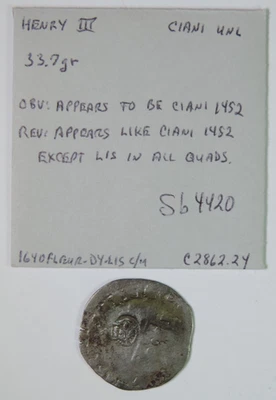 HENRY III CIANI UNL
33.7gr
OBV: APPEARS TO BE CIANI 1452
REV: APPEARS LIKE CIANI 1452
EXCEPT LIS IN ALL QUADS.
Sb4420
1640 FLEUR-DY-LIS C/M C2862.24